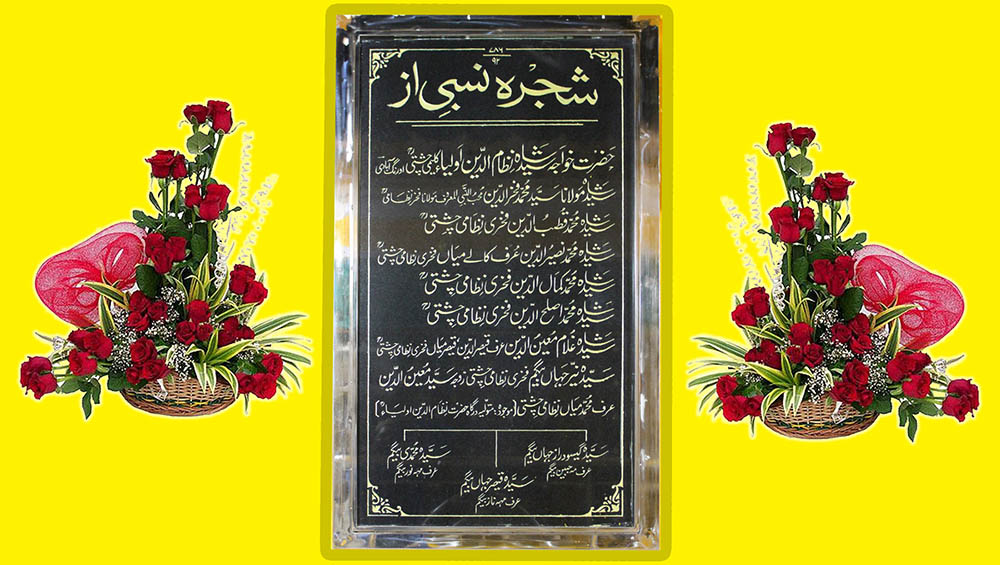 ۷۸۶
۹۲
شجرہ نسبی از
حضرت خواجہ سید شاہ نظام الدین اولیا کلیمی چشتیؒ اورنگ آبادی
سید شاہ مولانا سید محمد فخرالدین محب النبی المعروف مولانا فخر نظامیؒ
شاہ محمد قطب الدین فخری نظامی چشتیؒ
شاہ محمد نصیرالدین عرف کالے میاں فخری نظامی چشتیؒ
شاہ محمد کمال الدین فخری نظامی چشتیؒ
شاہ محمد اصلح الدین فخری نظامی چشتیؒ
شاہ غلام معین الدین عرف قیصرالدین قیصر میاں فخری نظامی چشتیؒ
سیدہ میر جہاں بیگم فخری نظامی چشتی زوجہ سید معین الدین
عرف محمد میاں نظامی چشتی (موجودہ متولیہ درگاہ حضرت نظام الدین اولیاءؒ)
سیدہ گیسودراز جہاں بیگم
عرف مہ جبین بیگم
سیدہ محمدی بیگم
عرف مہہ نور بیگم
سیدہ قیصر جہاں بیگم
عرف مہہ ناز بیگم